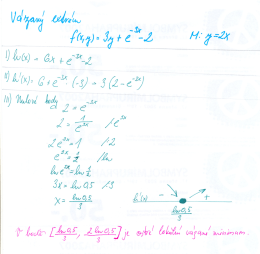 Vázaný extrém
f(x,y) = 3y + e^-3x - 2   M: y = 2x
I) h(x) = 6x + e^-3x - 2
II) h'(x) = 6 + e^-3x · (-3) = 3(2 - e^-3x)
III) Nulové body
2 = e^-3x
2 = 1/e^3x /e^3x
2e^3x = 1 /2
e^3x = 1/2 /ln
ln e^3x = ln 1/2
3x = ln 0,5 /3
x = ln 0,5/3
h'(x) - + ln 0,5/3
V bodě [ln 0,5/3, 2 ln 0,5/3] je ostré lokální vázané minimum.